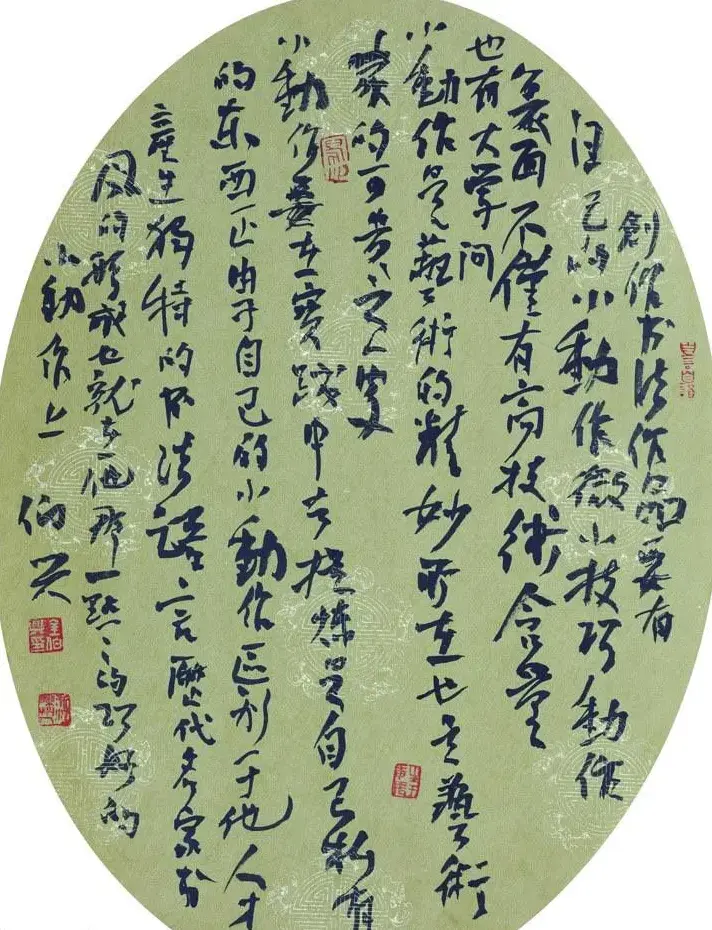 創作书法作品要有
自己的小動作微小技巧動作
裏面不僅有高技術含量
也有大学問
小動作是藝術的精妙所在也是藝術
家的可贵之处
小動作要在實踐中去提煉是自己私有
的东西正由于自己的小動作区别于他人才
產生獨特的书法語言歷代名家书
风的形成也就在他那一點々的巧妙的
小動作上
伯兴